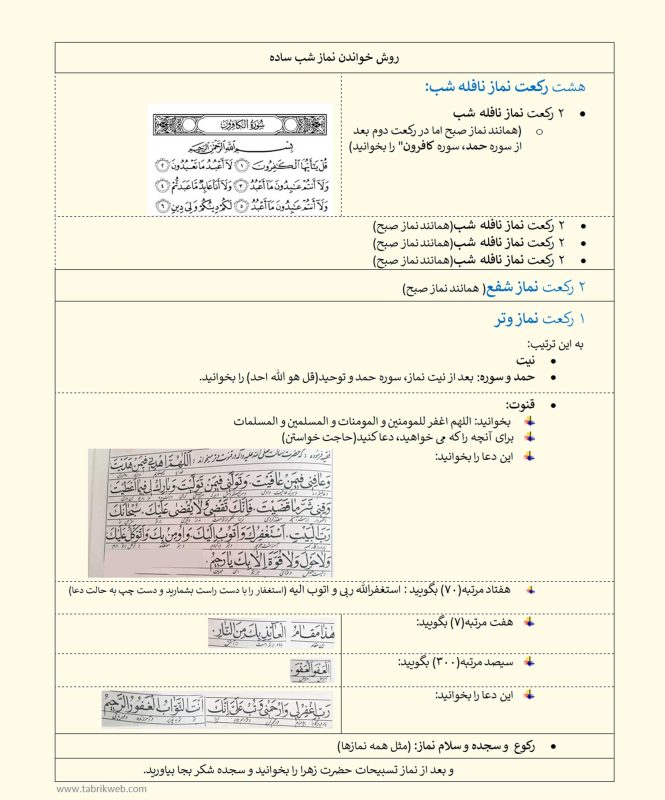 روش خواندن نماز شب ساده
هشت رکعت نماز نافله شب:
۲ رکعت نماز نافله شب
(همانند نماز صبح اما در رکعت دوم بعد
از سوره حمد، سوره کافرون" را بخوانید)
سورة الكافرون
بسم الله الرحمن الرحيم
قُلْ يَـٰٓأَيُّهَا ٱلْكَـٰفِرُونَ ۝١ لَآ أَعْبُدُ مَا تَعْبُدُونَ ۝٢
وَلَآ أَنتُمْ عَـٰبِدُونَ مَآ أَعْبُدُ ۝٣ وَلَآ أَنَا۠ عَابِدٌ مَّا عَبَدتُّمْ ۝٤
وَلَآ أَنتُمْ عَـٰبِدُونَ مَآ أَعْبُدُ ۝٥ لَكُمْ دِينُكُمْ وَلِىَ دِينِ ۝٦
۲ رکعت نماز نافله شب(همانند نماز صبح)
۲ رکعت نماز نافله شب(همانند نماز صبح)
۲ رکعت نماز نافله شب(همانند نماز صبح)
۲ رکعت نماز شفع( همانند نماز صبح)
۱ رکعت نماز وتر
به این ترتیب:
نیت
حمد و سوره: بعد از نیت نماز، سوره حمد و توحید(قل هو الله احد) را بخوانید.
قنوت:
بخوانید: اللهم اغفر للمومنین و المومنات و المسلمین و المسلمات
برای آنچه را که می خواهید، دعا کنید(حاجت خواستن)
این دعا را بخوانید:
اَللّٰهُمَّ اهْدِنِی فِیمَنْ هَدَیْتَ
وَعافِنِی فِیمَنْ عافَیْتَ وَتَوَلَّنِی فِیمَنْ تَوَلَّیْتَ وَبارِكْ لِی فِیما اَعْطَیْتَ
وَقِنِی شَرَّ ما قَضَیْتَ فَاِنَّكَ تَقْضِی وَلا یُقْضی عَلَیْكَ سُبْحانَكَ
رَبَّ الْبَیْتِ اَسْتَغْفِرُكَ وَاَتُوبُ اِلَیْكَ وَاُومِنُ بِكَ وَاَتَوَكَّلُ عَلَیْكَ
وَلا حَوْلَ وَلا قُوَّةَ اِلّا بِكَ یا رَحِیمُ
هفتاد مرتبه(۷۰) بگویید : استغفرالله ربی و اتوب الیه (استغفار را با دست راست بشمارید و دست چپ به حالت دعا)
هفت مرتبه(۷) بگویید:
هٰذا مَقامُ الْعائِذِ بِكَ مِنَ النّارِ
سیصد مرتبه(۳۰۰) بگویید:
اَلْعَفْوَ الْعَفْوَ
این دعا را بخوانید:
رَبِّ اغْفِرْ لِی وَارْحَمْنِی وَتُبْ عَلَیَّ اِنَّكَ اَنْتَ التَّوّابُ الْغَفُورُ الرَّحِیمُ
رکوع و سجده و سلام نماز: (مثل همه نمازها)
و بعد از نماز تسبیحات حضرت زهرا را بخوانید و سجده شکر بجا بیاورید.
www.tabrikweb.com